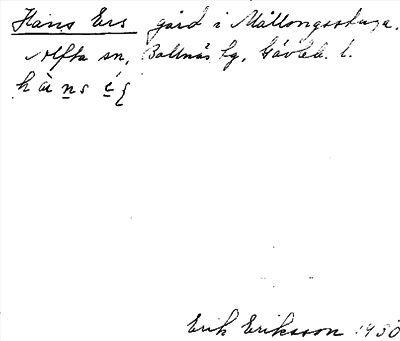 Hans Ers gård i Mållongsstuga.
Alfta sn, Bollnäs tg, Gävleb. l.
Erik Eriksson 1930